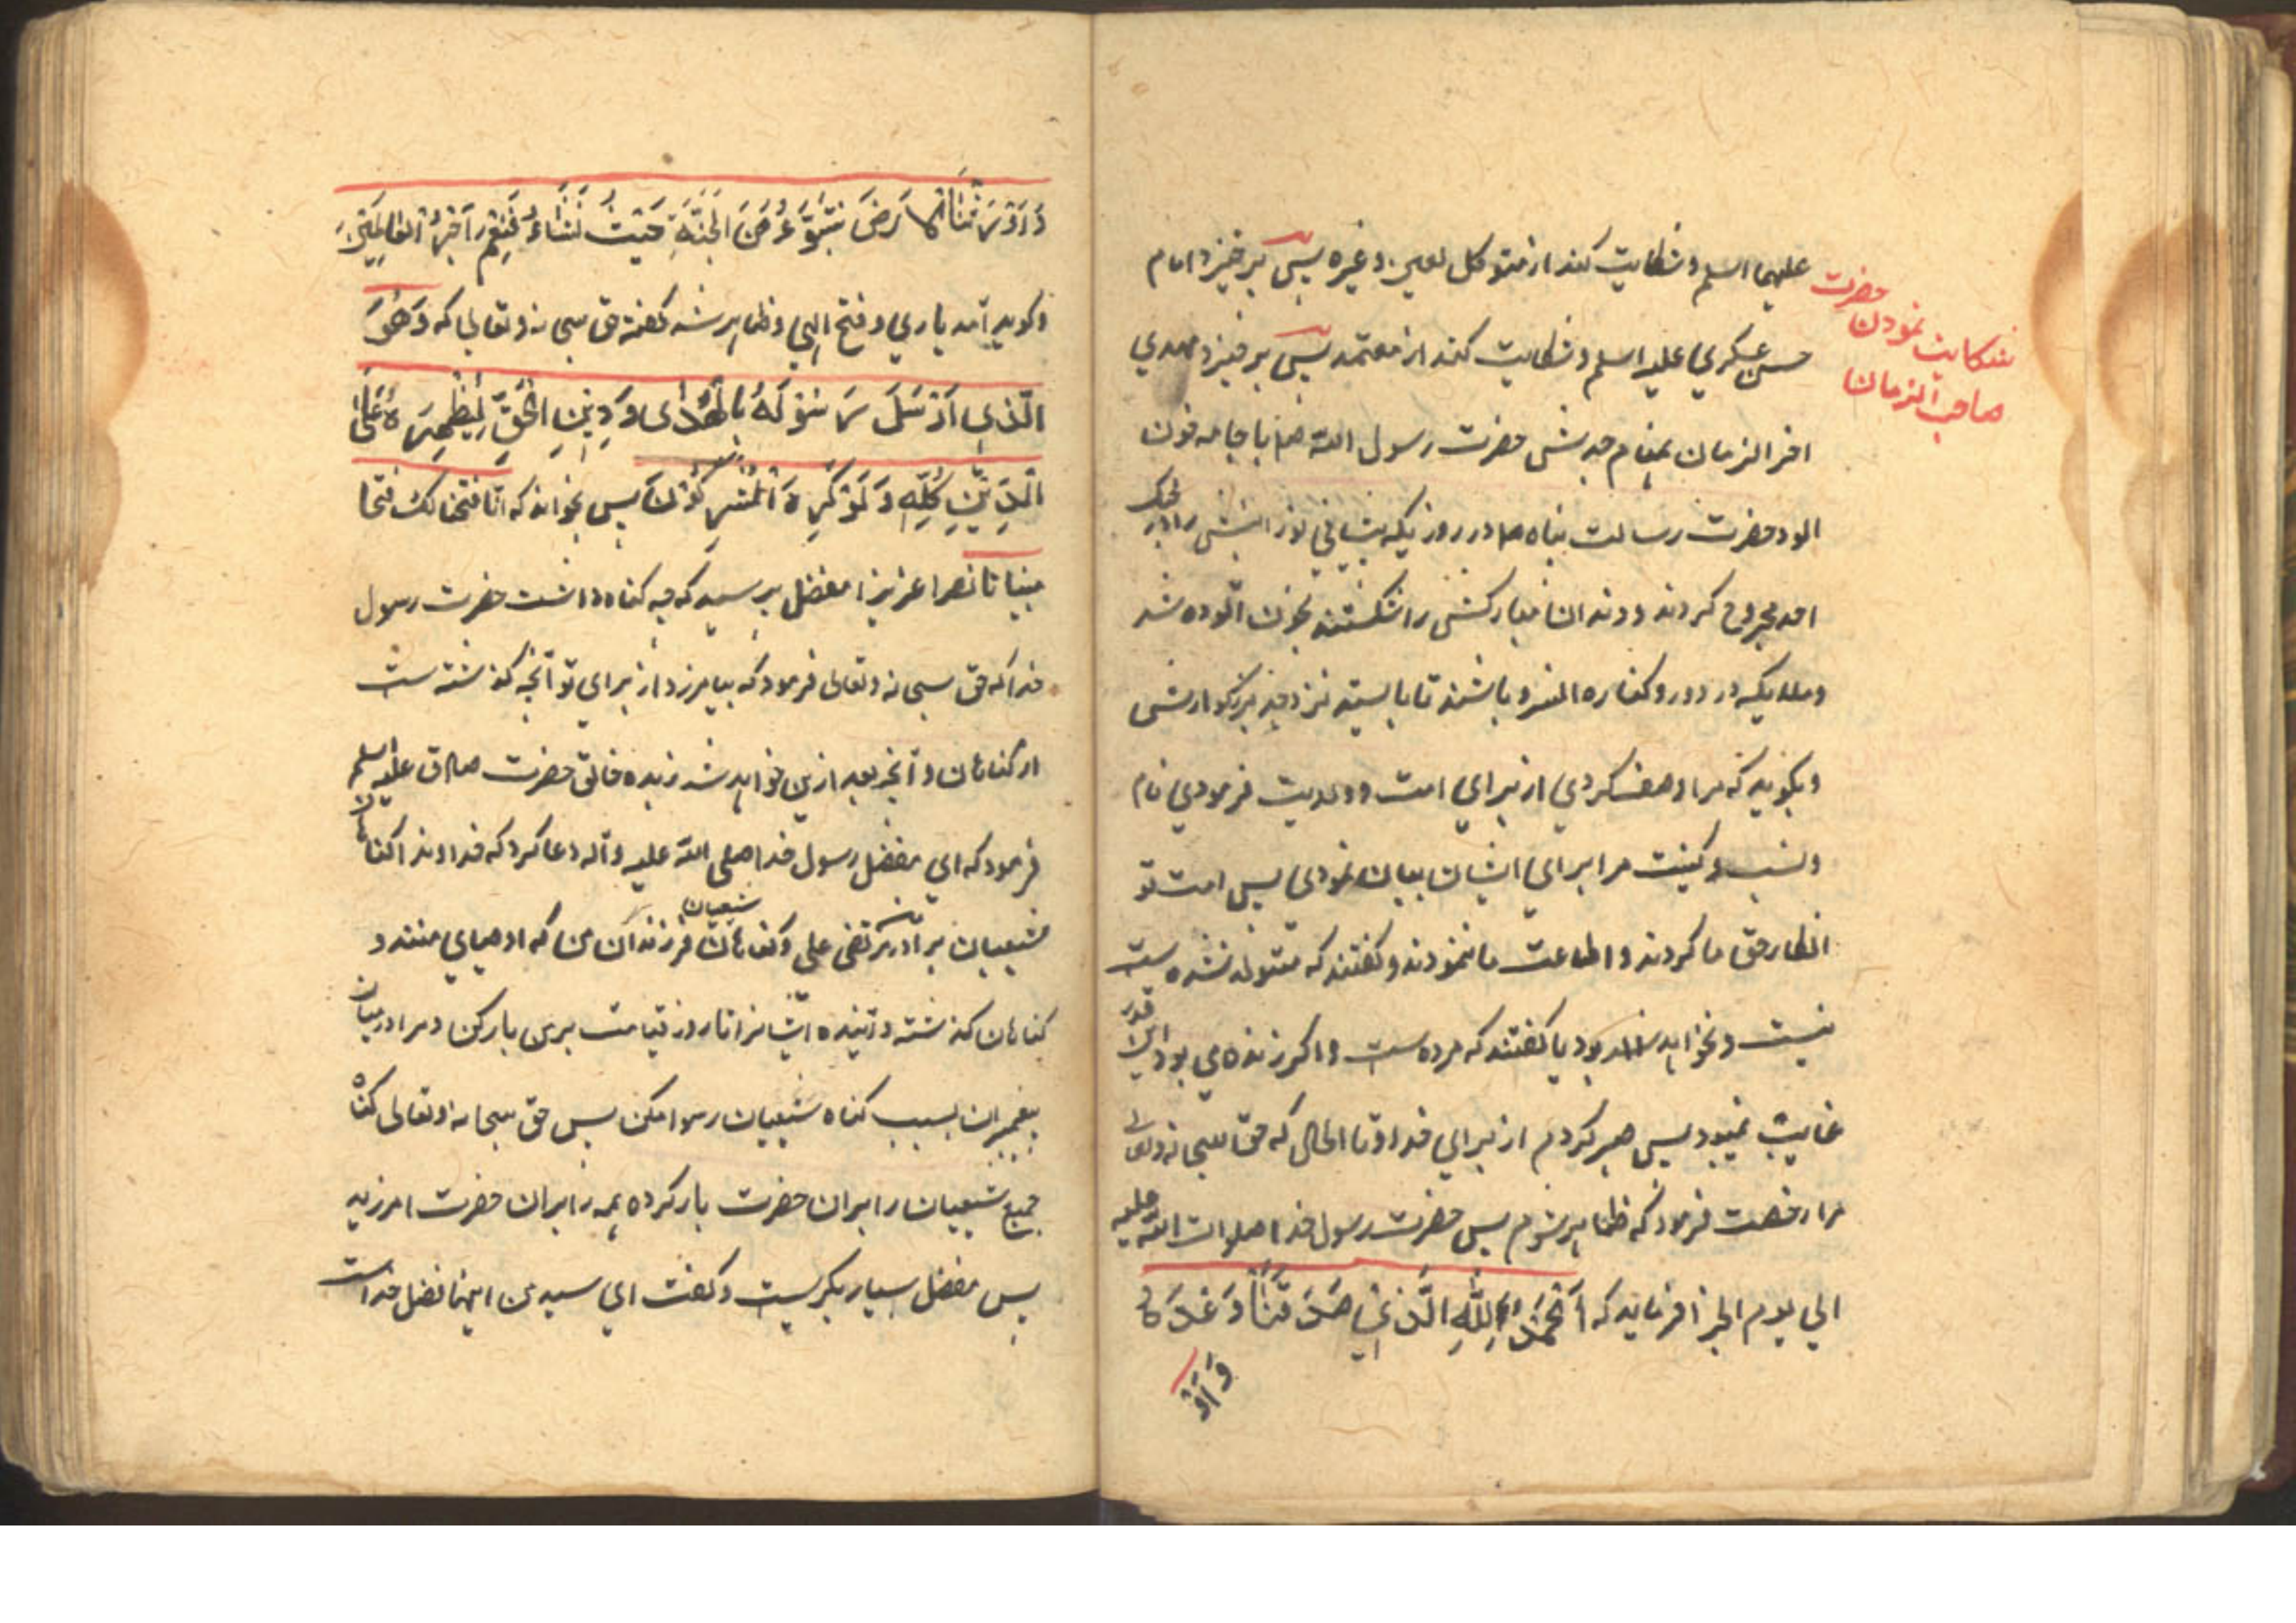 علیهما السلم و شکایت کند از متوکل لعین و غیره پس برخیزد امام
شکایت نمودن حضرت
صاحب الزمان
حسن عسکری علیه السلم و شکایت کند از معتمد پس برخیزد مهدی
اخر الزمان بمقام جدش حضرت رسول الله صم با جامه خون
الود حضرت رسالت پناه صم در روزیکه پیشانی نور انیش را در جنک
احد مجروح کردند و دندان مبارکش را شکستند بخون آلوده شد
و ملایکه در دور و کناره انسرو باشند تا بایستد نزد جد بزرکوارش
و بکوید که مرا وصف کردی از برای امت و دلالت فرمودی نام
و نسب و کنیت مرا برای ایشان بیان نمودی پس امت تو
انکار حق ما کردند و اطاعت ما ننمودند و کفتند که متولد نشده ست
نیست و نخواهد بود یا کفتند که مرده ست و اکر زنده می بود این قدر
غایب نمیبود پس صبر کردم از برای خدا و تا الحال که حق سبحانه و تعالی
مرا رخصت فرمود که ظاهر شوم پس حضرت رسول خدا صلوات الله علیه
الی یوم الجزا فرماید که اَلْحَمْدُ لِلّهِ الَّذِی صَدَقَنَا وَعْدَهُ
وَاَوْ
وَاَوْرَثَنَا الْاَرْضَ نَتَبَوَّءُ مِنَ الْجَنَّةِ حَیْثُ نَشَاءُ فَنِعْمَ اَجْرُ الْعَامِلِیْنَ
و کوید آمد یاری و فتح الهی و ظاهر شد کفته حق سبحانه و تعالی که وَهُوَ
الَّذِی اَرْسَلَ رَسُوْلَهُ بِالْهُدَی وَ دِیْنِ الْحَقِّ لِیُظْهِرَهُ عَلَی
الدِّیْنِ کُلِّهِ وَ لَوْ کَرِهَ الْمُشْرِکُوْنَ پس بخواند که انا فتحنا لک فتحا
مبینا تا نصرا عزیزا مفضل پرسید که چه کناه داشت حضرت رسول
خدا که حق سبحانه و تعالی فرمود که بیامرزد از برای تو آنچه کذشته ست
از کناهان و آنچه بعد ازین خواهد شد زبده خالق حضرت صادق علیه السلم
فرمود که ای مفضل رسول خدا صلی الله علیه و آله دعا کرد که خداوندا کناهان
شیعیان برادرم مرتضی علی و کناهان شیعیان فرزندان من که اوصیای منند و
کناهان کذشته و آینده ایشانرا تا روز قیامت بر من بار کن و مرا در میان
پیغمبران بسبب کناه شیعیان رسوا مکن پس حق سبحانه و تعالی کناه
جمیع شیعیان را بران حضرت بار کرده همه را بران حضرت امرزید
پس مفضل بسیار بکریست و کفت ای سید من اینها فضل خداست